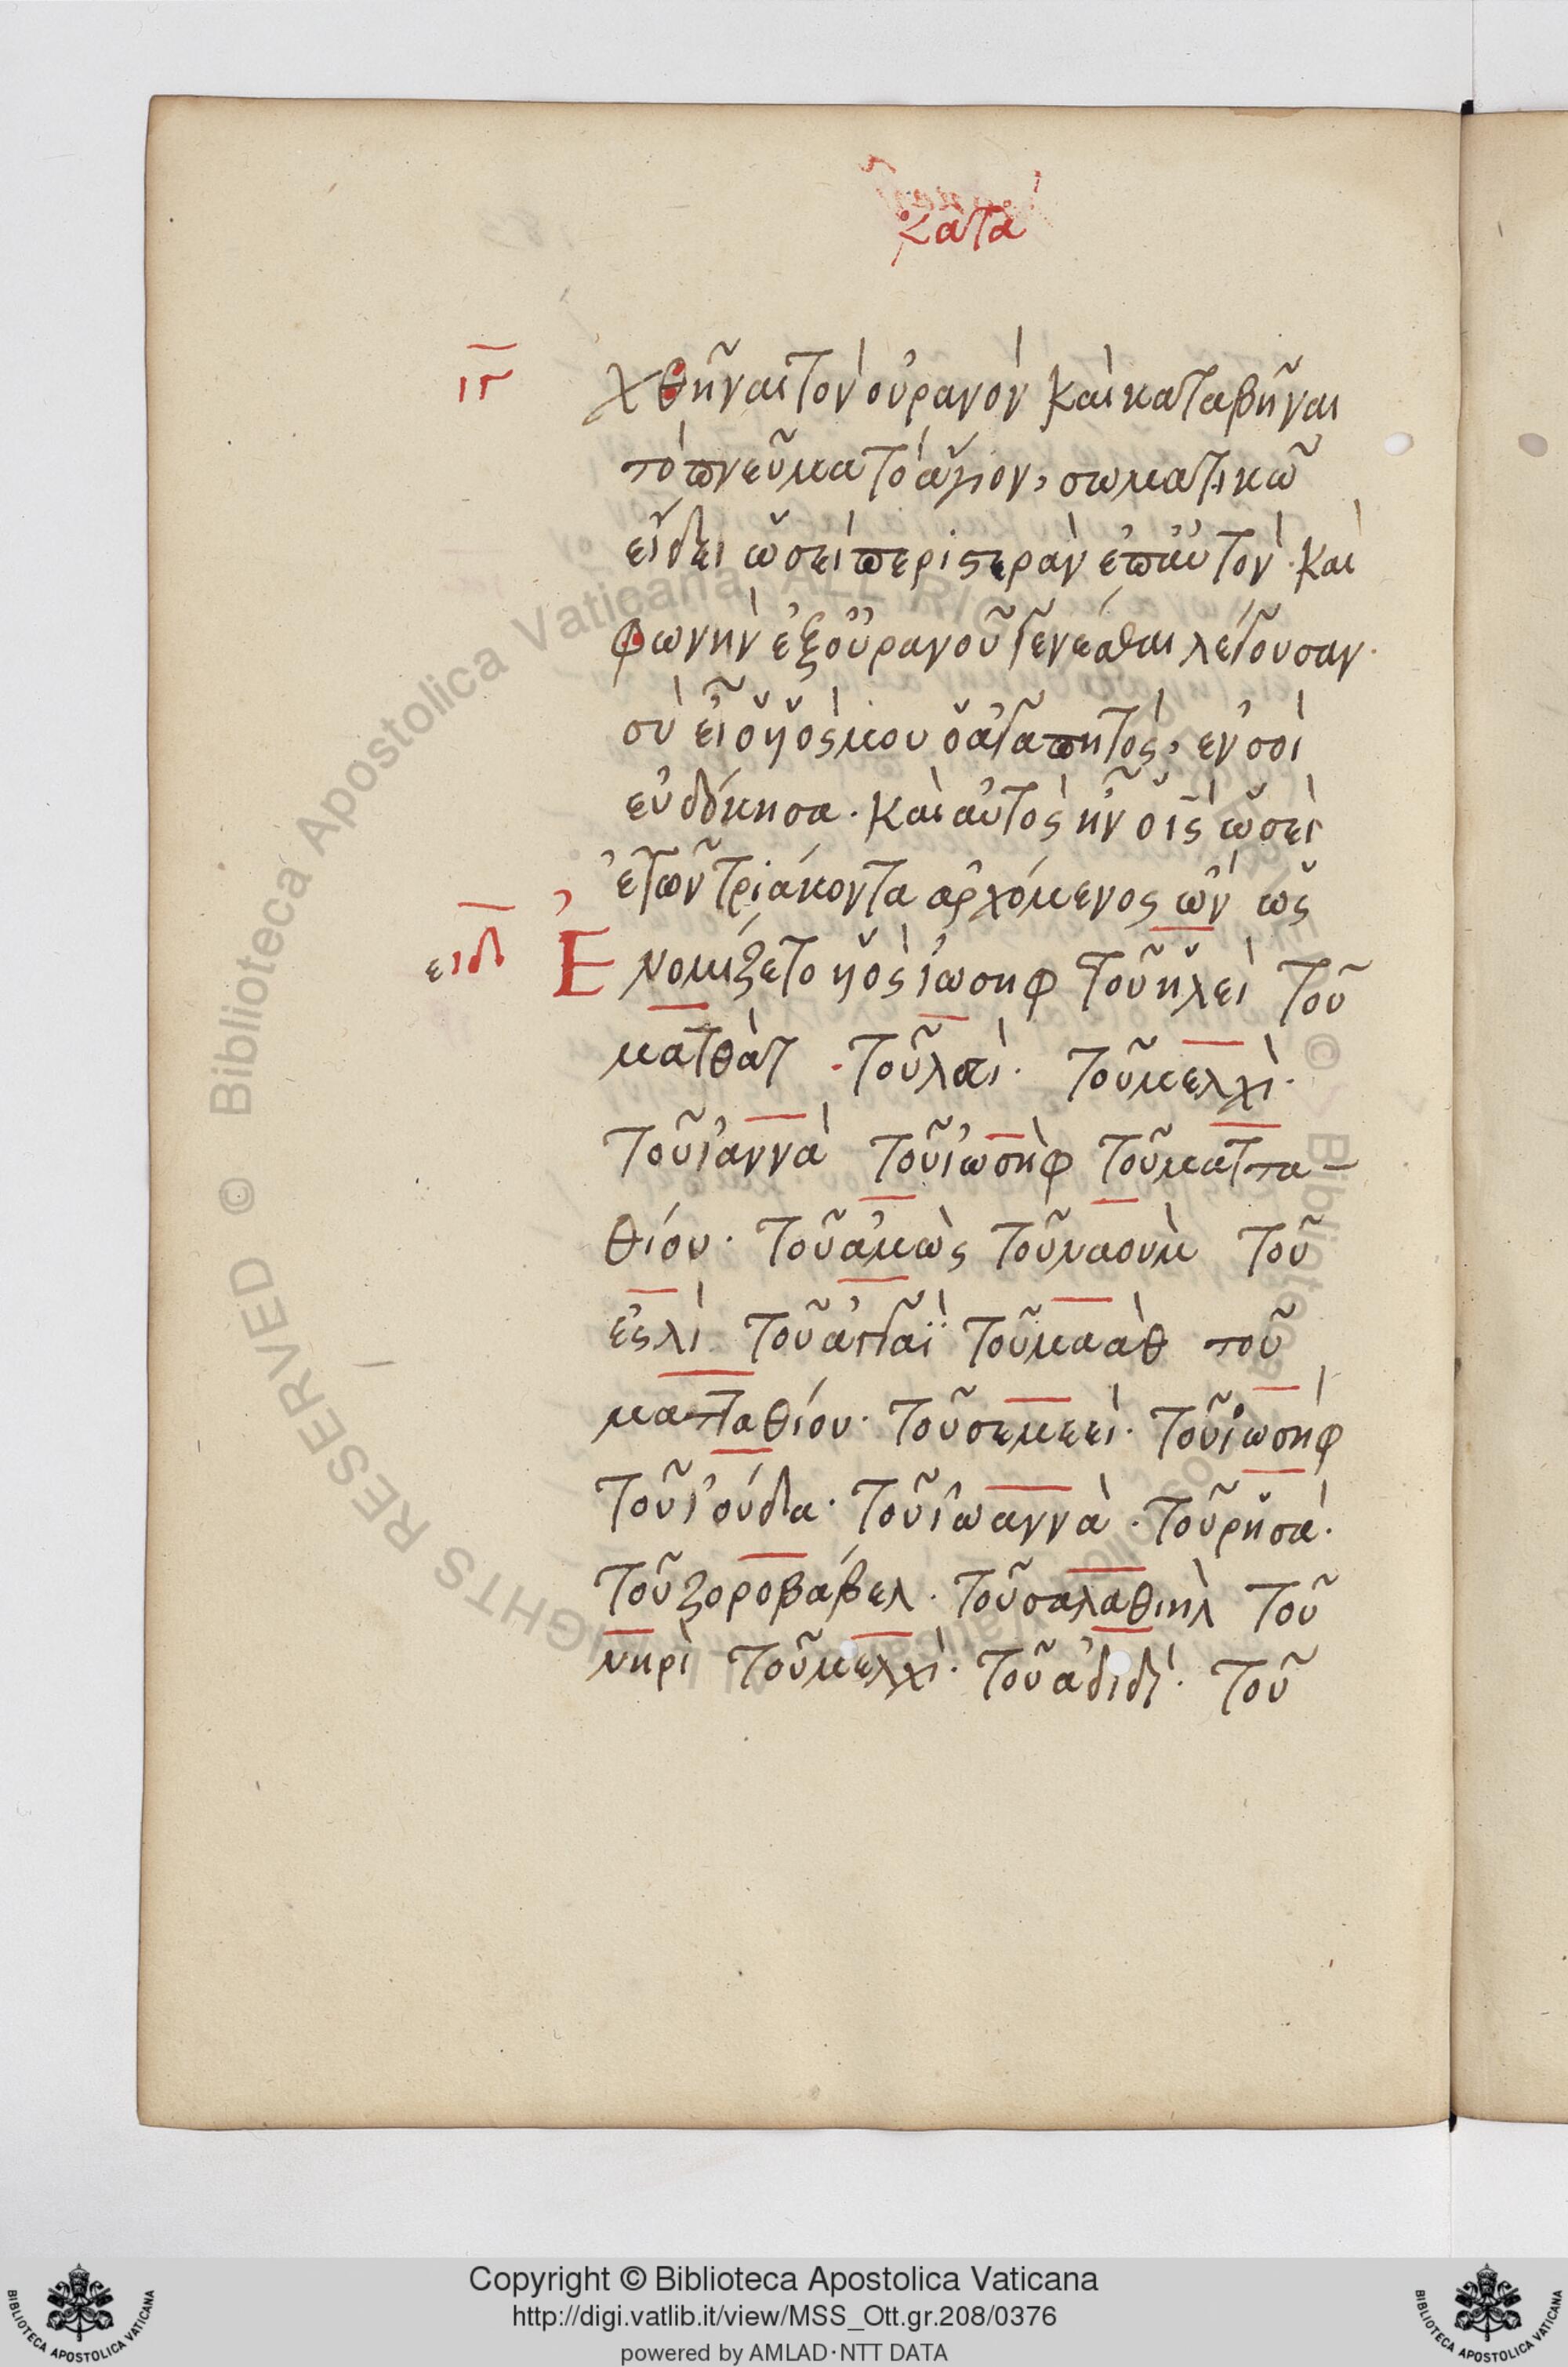 κατα
ιγ
χθῆναι τὸν οὐρανὸν καὶ καταβῆναι
τὸ πνεῦμα τὸ ἅγιον, σωματικῶ
εἴδει ὡσεὶ περιστερὰν ἐπ᾽ αὐτὸν· καὶ
φωνὴν ἐξ οὐρανοῦ γενέσθαι λέγουσαν·
σὺ εἶ ὁ υἱὸς μου ὁ ἀγαπητὸς, ἐν σοὶ
εὐδόκησα· καὶ αὐτὸς ἦν ὁ ις ὡσεὶ
ἐτῶν τριάκοντα ἀρχόμενος ὢν ὡς
ειδ
Ἐνομίζετο υἱὸς ἰωσηφ τοῦ ἡλεὶ τοῦ
ματθὰτ · τοῦ λευὶ· τοῦ μελχὶ·
τοῦ ἰαννὰ τοῦ ἰωσὴφ τοῦ ματτα-
θίου· τοῦ ἀμὼς τοῦ ναοὺμ τοῦ
ἐσλὶ τοῦ ἀγγαῒ τοῦ μαὰθ τοῦ
ματταθίου· τοῦ σεμεεὶ· τοῦ ἰωσὴφ
τοῦ ἰούδα· τοῦ ἰωαννὰ· τοῦ ῥησὰ·
τοῦ ζοροβάβελ· τοῦ σαλαθιὴλ τοῦ
νηρὶ τοῦ μελχὶ· τοῦ ἀδιδὶ· τοῦ
© Biblioteca Apostolica Vaticana ALL RIGHTS RESERVED
Copyright © Biblioteca Apostolica Vaticana
http://digi.vatlib.it/view/MSS_Ott.gr.208/0376
powered by AMLAD·NTT DATA
BIBLIOTECA APOSTOLICA VATICANA
BIBLIOTECA APOSTOLICA VATICANA